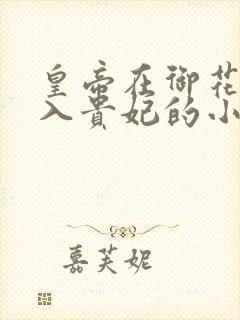 皇帝在御花
入贵妃的小
嘉芙妮